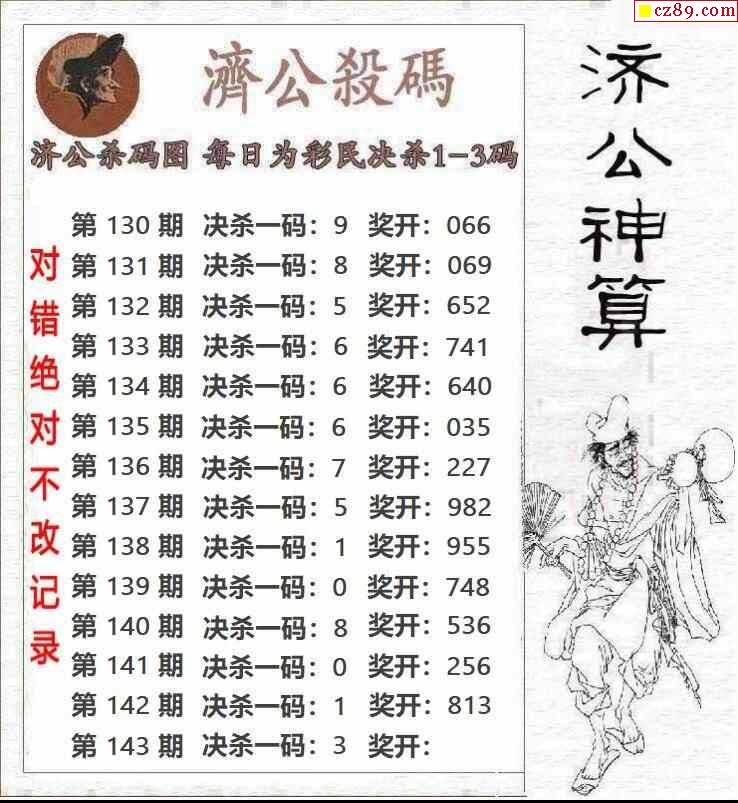 cz89.com
濟公殺碼
济公杀码图 每日为彩民决杀1-3码
第 130 期 决杀一码：9 奖开：066
第 131 期 决杀一码：8 奖开：069
第 132 期 决杀一码：5 奖开：652
第 133 期 决杀一码：6 奖开：741
第 134 期 决杀一码：6 奖开：640
第 135 期 决杀一码：6 奖开：035
第 136 期 决杀一码：7 奖开：227
第 137 期 决杀一码：5 奖开：982
第 138 期 决杀一码：1 奖开：955
第 139 期 决杀一码：0 奖开：748
第 140 期 决杀一码：8 奖开：536
第 141 期 决杀一码：0 奖开：256
第 142 期 决杀一码：1 奖开：813
第 143 期 决杀一码：3 奖开：
对错绝对不改记录
济公神算